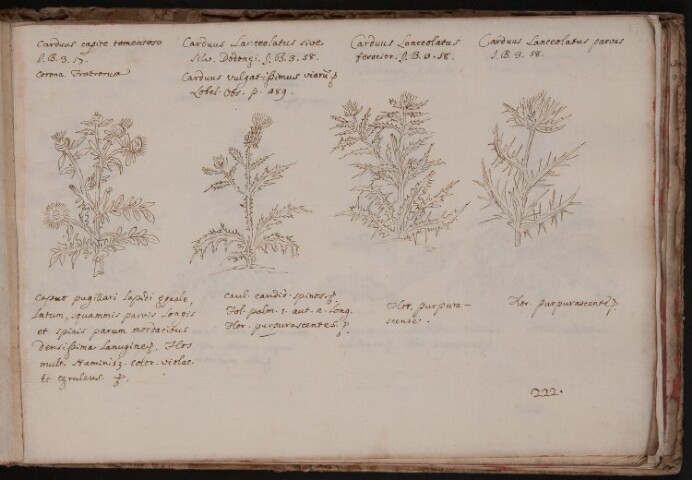 Carduus capite tomentoso
J. B. 3. 57.
Corona Fratrum
Carduus Lanceolatus sive
Silv. Dodonęi. J. B. 3. 58.
Carduus vulgatissimus viarū
Lobel. Obs. p. 489.
Carduus Lanceolatus
ferocior. J. B. 3. 58.
Carduus Lanceolatus parvus
J. B. 3. 58.
Caput pugillari lapidi ęquale,
latum, squammis parvis longis
et spinis parum mordacibus
densissima lanugine. Flos
mult. staminib. color. violac.
et cęruleus
caul. candid. spinos.
Fol. palm. 1. aut. 2. long.
Flor. purpurascentes.
Flor. purpura-
scente.
Flor. purpurascente
222.